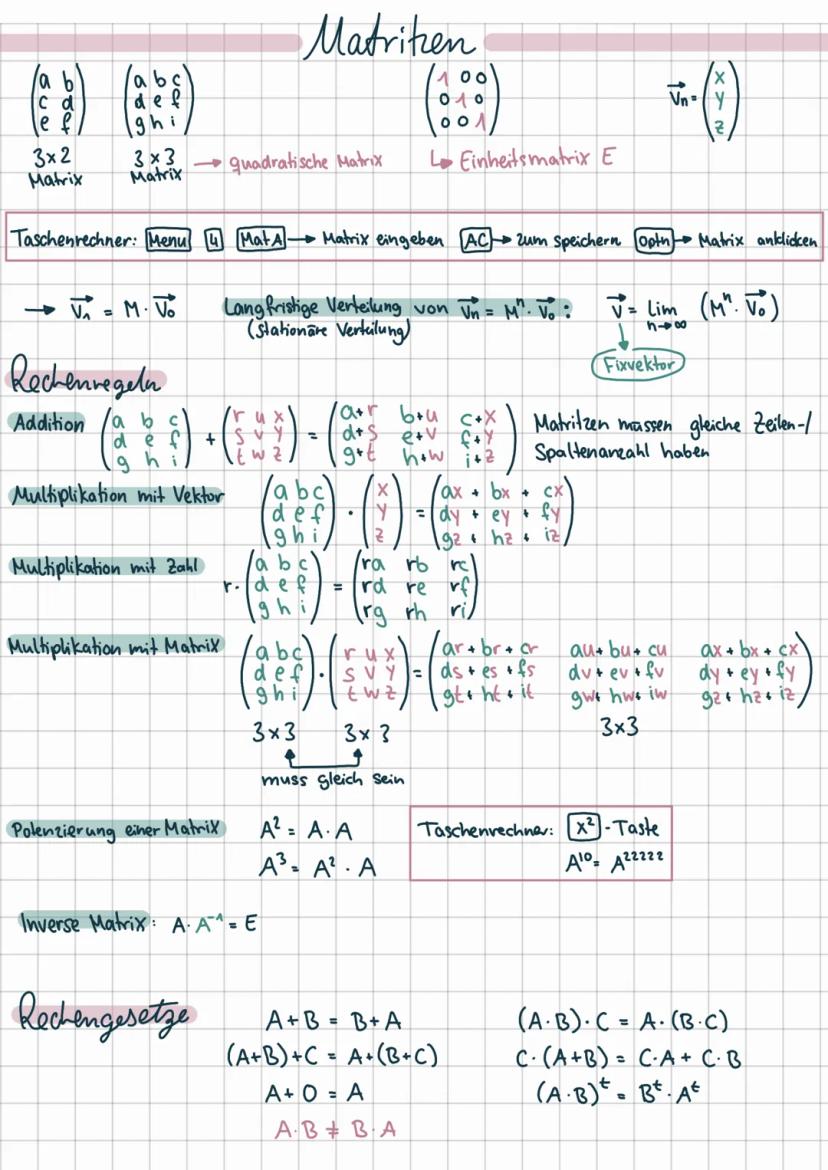 Matritzen
(a b
c d
e f)
3x2
Matrix
(a b c
d e f
g h i)
3 x 3
Matrix
→ quadratische Matrix
(1 0 0
0 1 0
0 0 1)
↳ Einheitsmatrix E
Vn = (x
y
z)
Taschenrechner: Menu 4 Mat A → Matrix eingeben AC → zum Speichern Optn → Matrix anklicken
→ V₁ = M · V₀ Langfristige Verteilung von Vn = Mⁿ · V₀ : V = lim (Mⁿ · V₀)
(Stationäre Verteilung) n→∞
Fixvektor
Rechenregeln
Addition
(a b c
d e f
g h i) + (r u x
s v y
t w z) = (a+r b+u c+x
d+s e+v f+y
g+t h+w i+z)
Matritzen müssen gleiche Zeilen-/
Spaltenanzahl haben
Multiplikation mit Vektor
(a b c
d e f
g h i) · (x
y
z) = (ax + bx + cx
dy + ey + fy
gz + hz + iz)
Multiplikation mit Zahl
r · (a b c
d e f
g h i) = (ra rb rc
rd re rf
rg rh ri)
Multiplikation mit Matrix
(a b c
d e f
g h i) · (r u x
s v y
t w z) = (ar + br + cr au + bu + cu ax + bx + cx
ds + es + fs dv + ev + fv dy + ey + fy
gt + ht + it gw + hw + iw gz + hz + iz)
3 x 3 3 x 3 3x3
muss gleich sein
Potenzierung einer Matrix A² = A · A
A³ = A² · A
Taschenrechner: x² - Taste
A¹⁰ = A²²²²²
Inverse Matrix: A · A⁻¹ = E
Rechengesetze
A + B = B + A
(A+B)+C = A+(B+C)
A + O = A
A · B ≠ B · A
(A · B) · C = A · (B · C)
C · (A+B) = C · A + C · B
(A · B)ᵗ = Bᵗ · Aᵗ